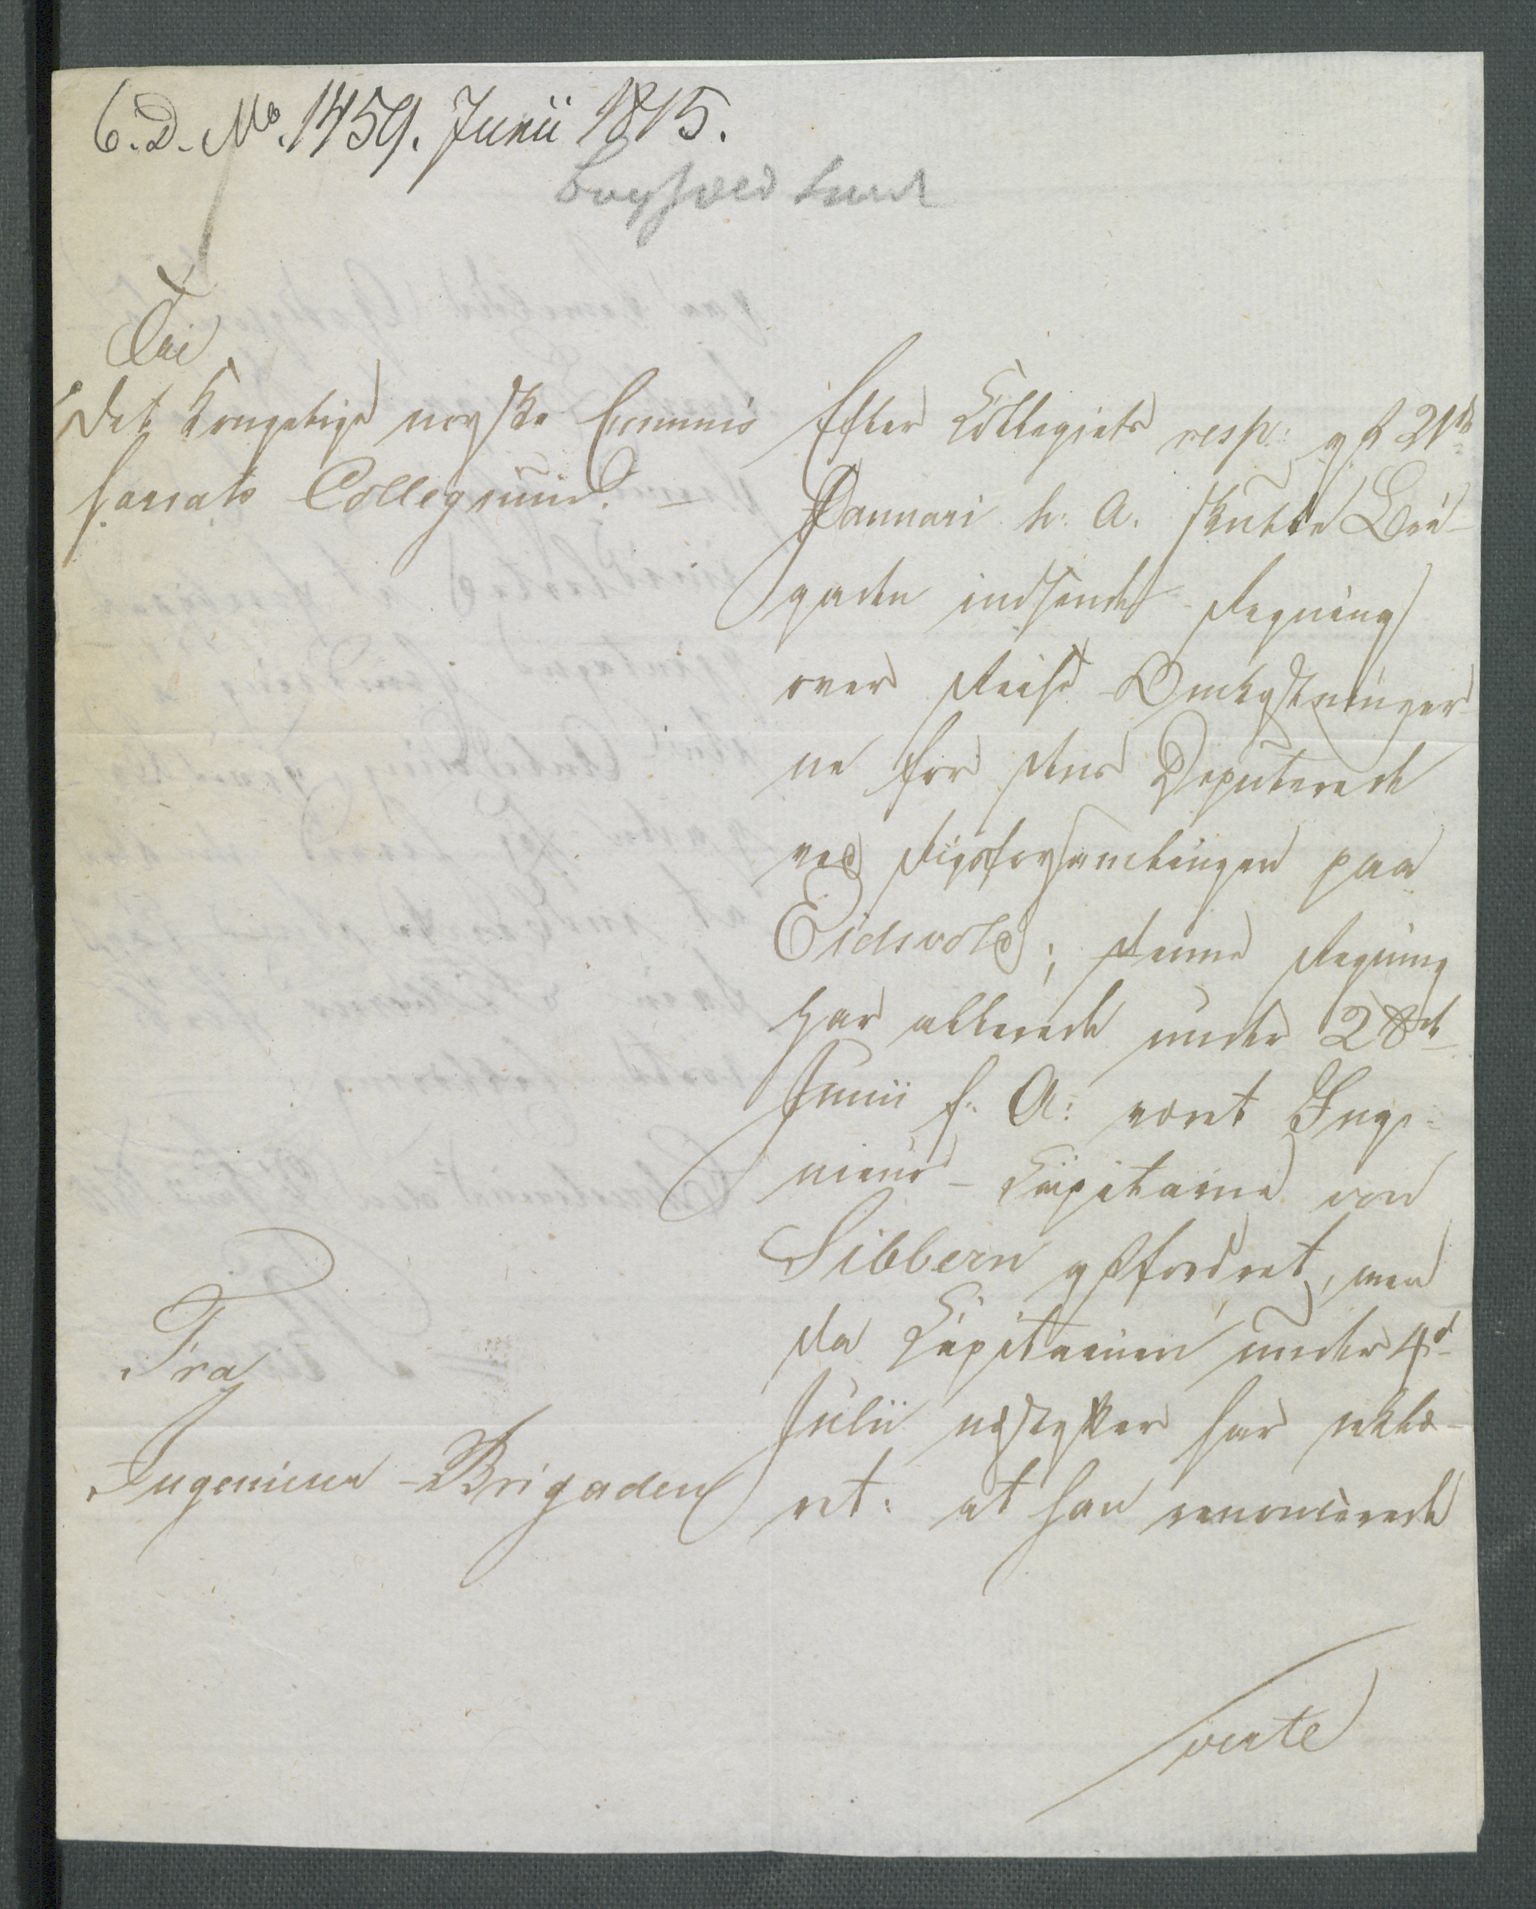 6. D. No. 1459. Junii 1815.
Til
Det Kongelige norske Commis
sariats Collegium. —
Fra
Ingenieur-Brigaden
Efter Collegiets resp: af 21de
Januari h: A. skulde Bri-
gaden indsende Regning
over Reise-Omkostninger
ne for dens Deputerede
ved Rigsforsamlingen paa
Eidsvold; denne Regning
har allerede under 28de
Junii f: A: været Inge-
nieur-Capitaine von
Sibbern affordret, men
da Capitainen under 4d
Julii næstefter har erklæ-
ret: at han renoncerede
verte